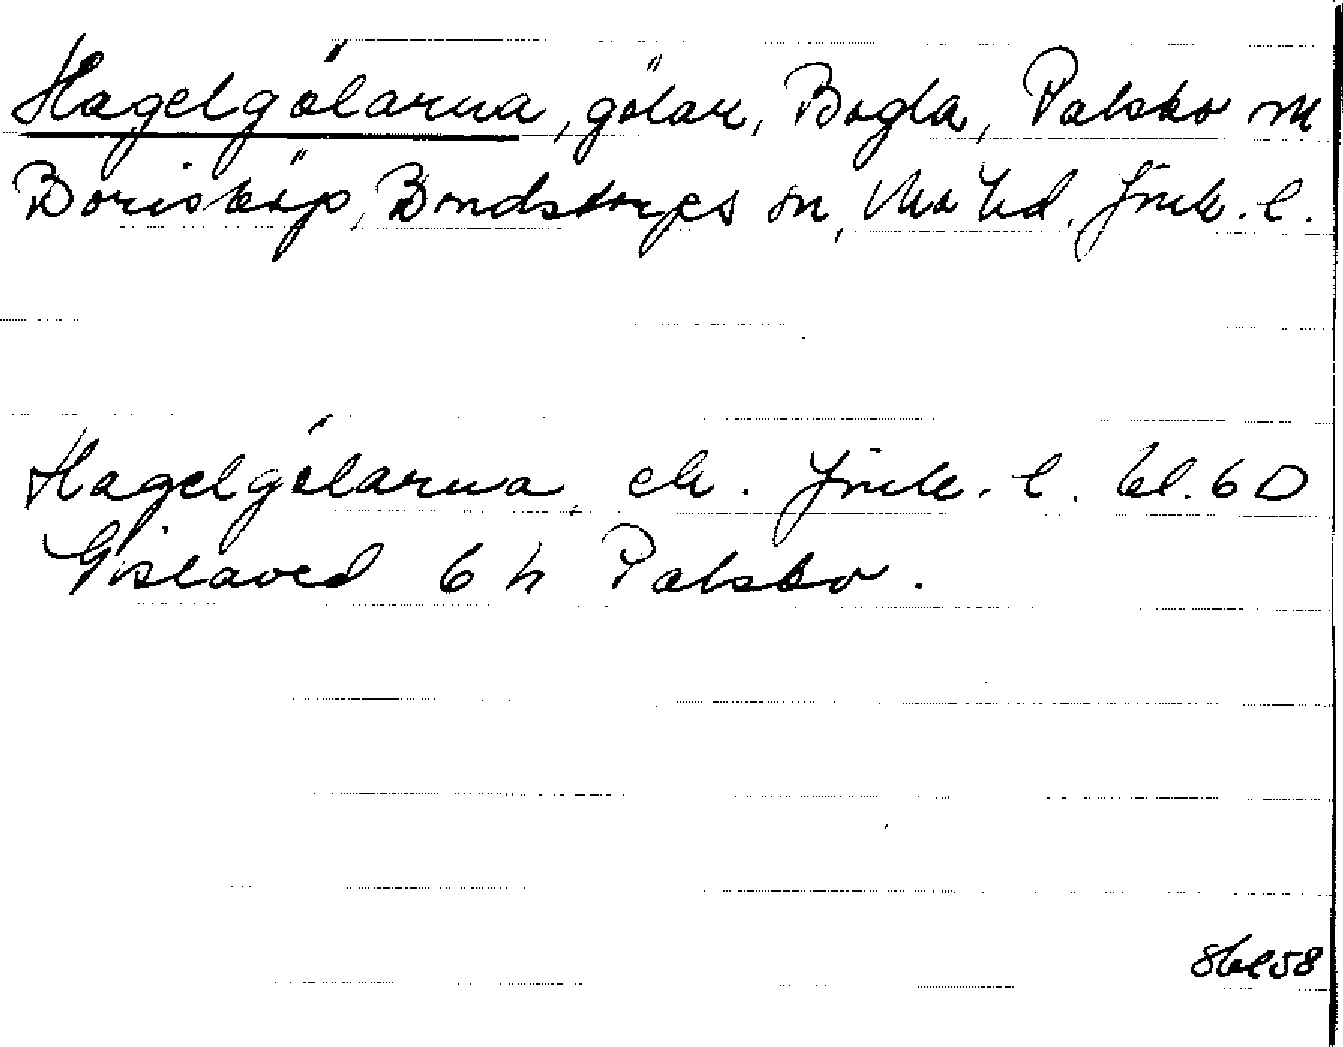 Hagelgölarna, gölar, Bogla, Palsbo m
Borisköp, Bondstorps sn, Mo hd. Jönk. l.
Hagelgölarna, ek. Jönk. l. bl. 6D
Gislaved 6 h Palsbo.